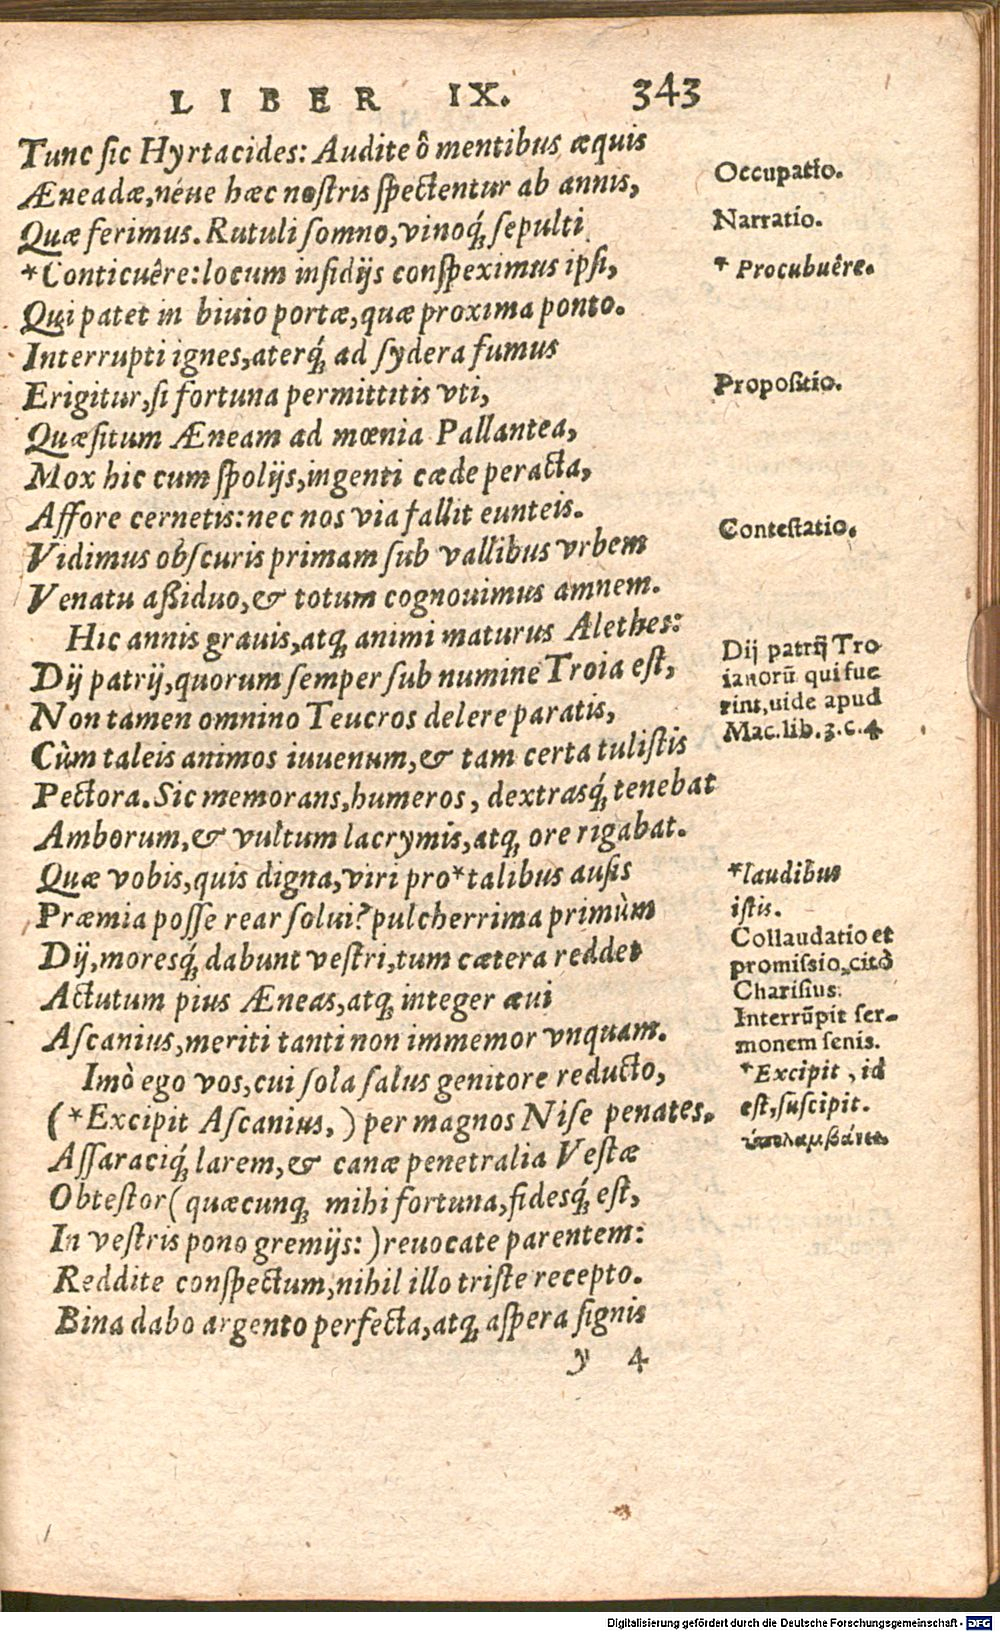 LIBER IX. 343
Tunc sic Hyrtacides: Audite ô mentibus æquis
Æneadæ, néue hæc nostris spectentur ab annis,
Quæ ferimus. Rutuli somno, vinoq́; sepulti
*Conticuêre: locum insidijs conspeximus ipsi,
Qui patet in biuio portæ, quæ proxima ponto.
Interrupti ignes, aterq́; ad sydera fumus
Erigitur, si fortuna permittitis vti,
Quæsitum Æneam ad mœnia Pallantea,
Mox hic cum spolijs, ingenti cæde peracta,
Affore cernetis: nec nos via fallit eunteis.
Vidimus obscuris primam sub vallibus vrbem
Venatu aßiduo, & totum cognouimus amnem.
Hic annis grauis, atq; animi maturus Alethes:
Dij patrij, quorum semper sub numine Troia est,
Non tamen omnino Teucros delere paratis,
Cùm taleis animos iuuenum, & tam certa tulistis
Pectora. Sic memorans, humeros, dextrasq́; tenebat
Amborum, & vultum lacrymis, atq; ore rigabat.
Quæ vobis, quis digna, viri pro *talibus ausis
Præmia posse rear solui? pulcherrima primùm
Dij, moresq́; dabunt vestri, tum cætera reddet
Actutum pius Æneas, atq; integer æui
Ascanius, meriti tanti non immemor vnquam.
Imò ego vos, cui sola salus genitore reducto,
(*Excipit Ascanius,) per magnos Nise penates,
Assaraciq́; larem, & canæ penetralia Vestæ
Obtestor (quæcunq; mihi fortuna, fidesq́; est,
In vestris pono gremijs:) reuocate parentem:
Reddite conspectum, nihil illo triste recepto.
Bina dabo argento perfecta, atq; aspera signis
y 4
Occupatio.
Narratio.
* Procubuêre.
Propositio.
Contestatio.
Dij patrij Tro
ianorũ qui fue
rint, uide apud
Mac. lib. 3. c. 4
*laudibus
istis.
Collaudatio et
promissio, citò
Charisius.
Interrũpit ser-
monem senis.
*Excipit, id
est, suscipit.
ὑπολαμβάνει.
Digitalisierung gefördert durch die Deutsche Forschungsgemeinschaft - DFG